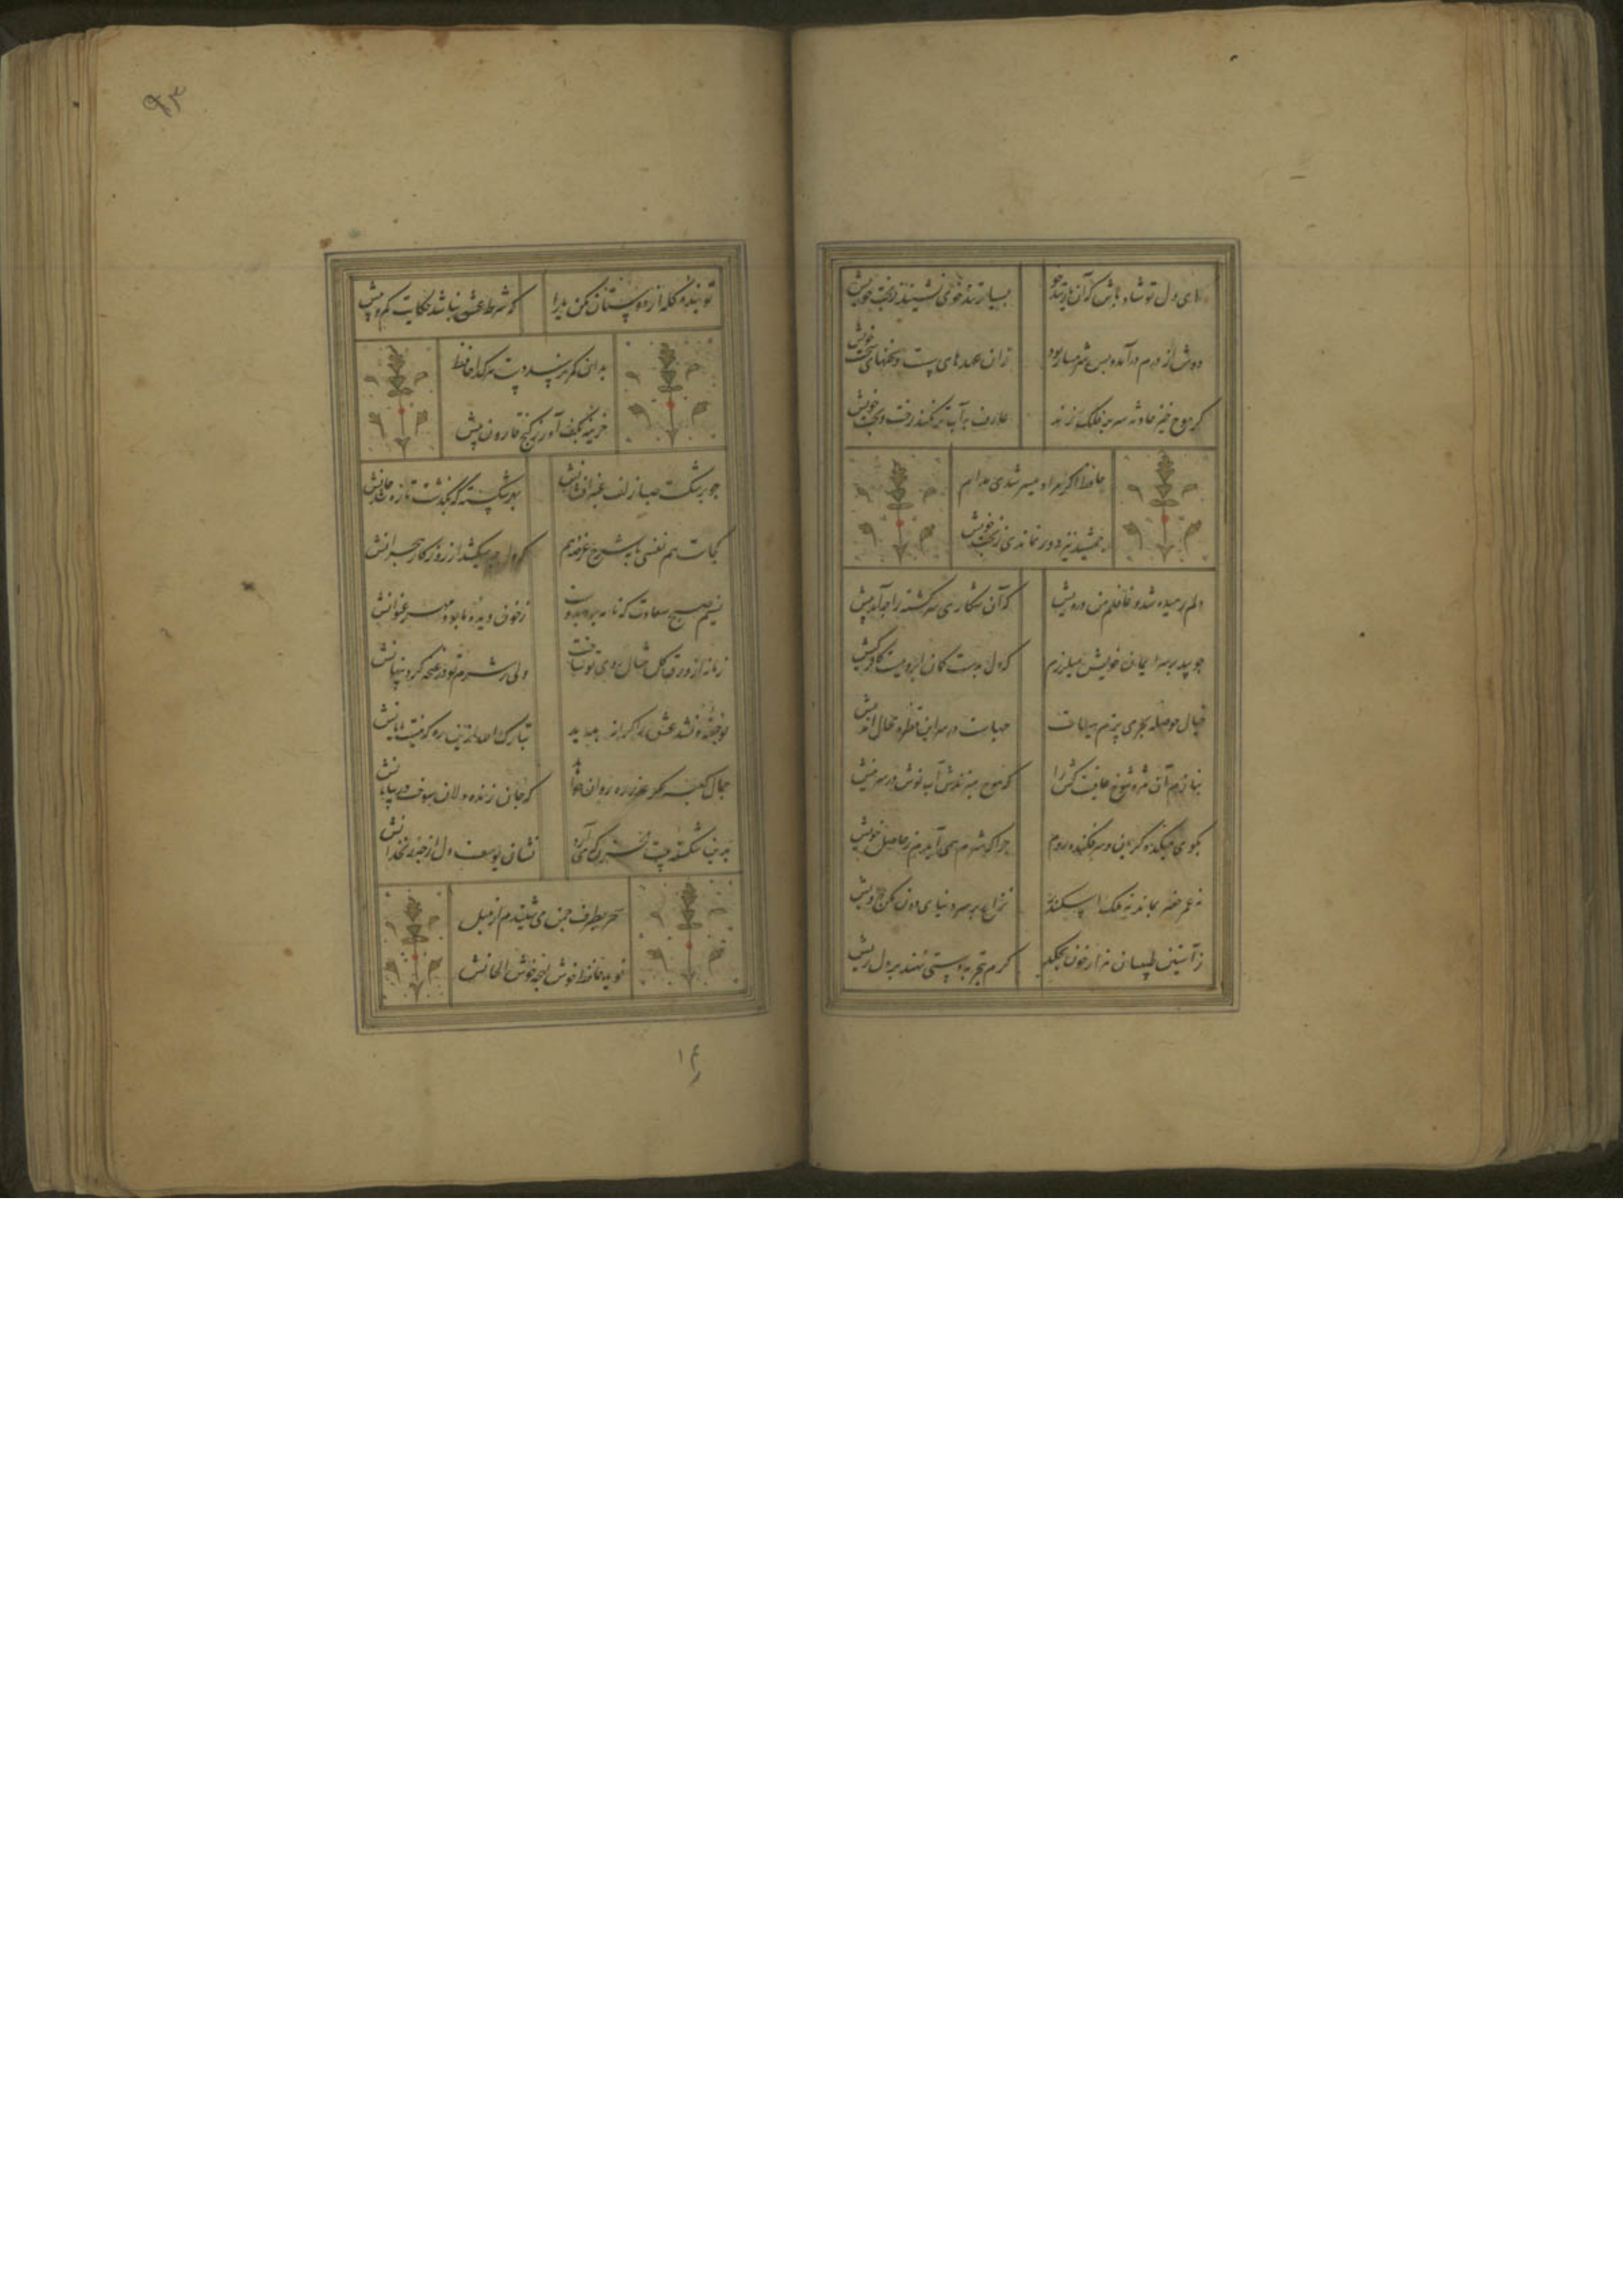 ای دل تو شاد باش که آن یار تندخو
بسیار تندخوی نشیند ز بخت خویش
زان عهدهای سست و سخنهای سخت خویش
گر موج خیز حادثه سر بر فلک زند
عارف به آب تر نکند رخت و پخت خویش
حافظ اگر مراد میسر شدی مدام
جمشید نیز دور نماندی ز تخت خویش
دلم رمیده شد و غافلم من درویش
که آن شکاری سرگشته را چه آمد پیش
چو بید بر سر ایمان خویش میلرزم
که دل بدست کمان ابروییست کافر کیش
خیال حوصله بحر می پزم هیهات
چهاست در سر این قطره محال اندیش
بنازم آن مژه شوخ عافیت کش را
که موج میزندش آب نوش در سر نیش
بکوی میکده گریان و سرفکنده روم
چرا که شرم همی آیدم ز حاصل خویش
نه عمر خضر بماند نه ملک اسکندر
نزاع بر سر دنیای دون مکن درویش
ز آستین طبیبان هزار خون بچکد
گرم بتجربه دستی نهند بر دل ریش
تو بنده گله از دوستان مکن
که شرط عشق نباشد حکایت کم و بیش
بدان کمر نرسد دست هر گدا حافظ
خزینه بکف آور ز گنج قارون بیش
چو برشکست صبا زلف عنبرافشانش
بهر شکسته که بگذشت تازه شد جانش
کجاست هم نفسی تا بشرح عرضه دهم
که دل چه میکشد از روزگار هجرانش
نسیم صبح سعادت که نامه برد بدوست
ز خون دیده ما بود مهر عنوانش
زمانه از ورق گل مثال روی تو ساخت
ولی ز شرم تو در غنچه کرد پنهانش
تو خفته و نشد عشق را کرانه پدید
تبارک الله از این ره که نیست پایانش
جمال کعبه مگر عذر ره روان خواهد
که جان زنده دلان سوخت در بیابانش
بدین شکسته بیت
نشان یوسف دل از چه زنخدانش
سحر بطرف چمن می شنیدم از بلبل
نوید حافظ خوش لهجه خوش الحانش